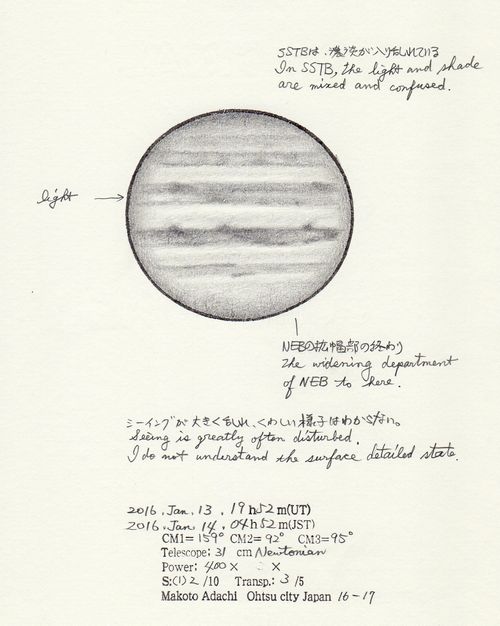 SSTBは、濃淡が入り乱れている
In SSTB, the light and shade
are mixed and confused.
light
NEBの拡幅部の終わり
the widening department
of NEB to here.
シーイングが大きく乱れ、くわしい様子はわからない。
Seeing is greatly often disturbed.
I do not understand the surface detailed state.
2016. Jan. 13. 19h52m(UT)
2016. Jan. 14. 04h52m(JST)
CM1=159° CM2=92° CM3=95°
Telescope: 31 cm Newtonian
Power: 400× ×
S:(1)2/10 Transp.: 3/5
Makoto Adachi Ohtsu city Japan 16-17